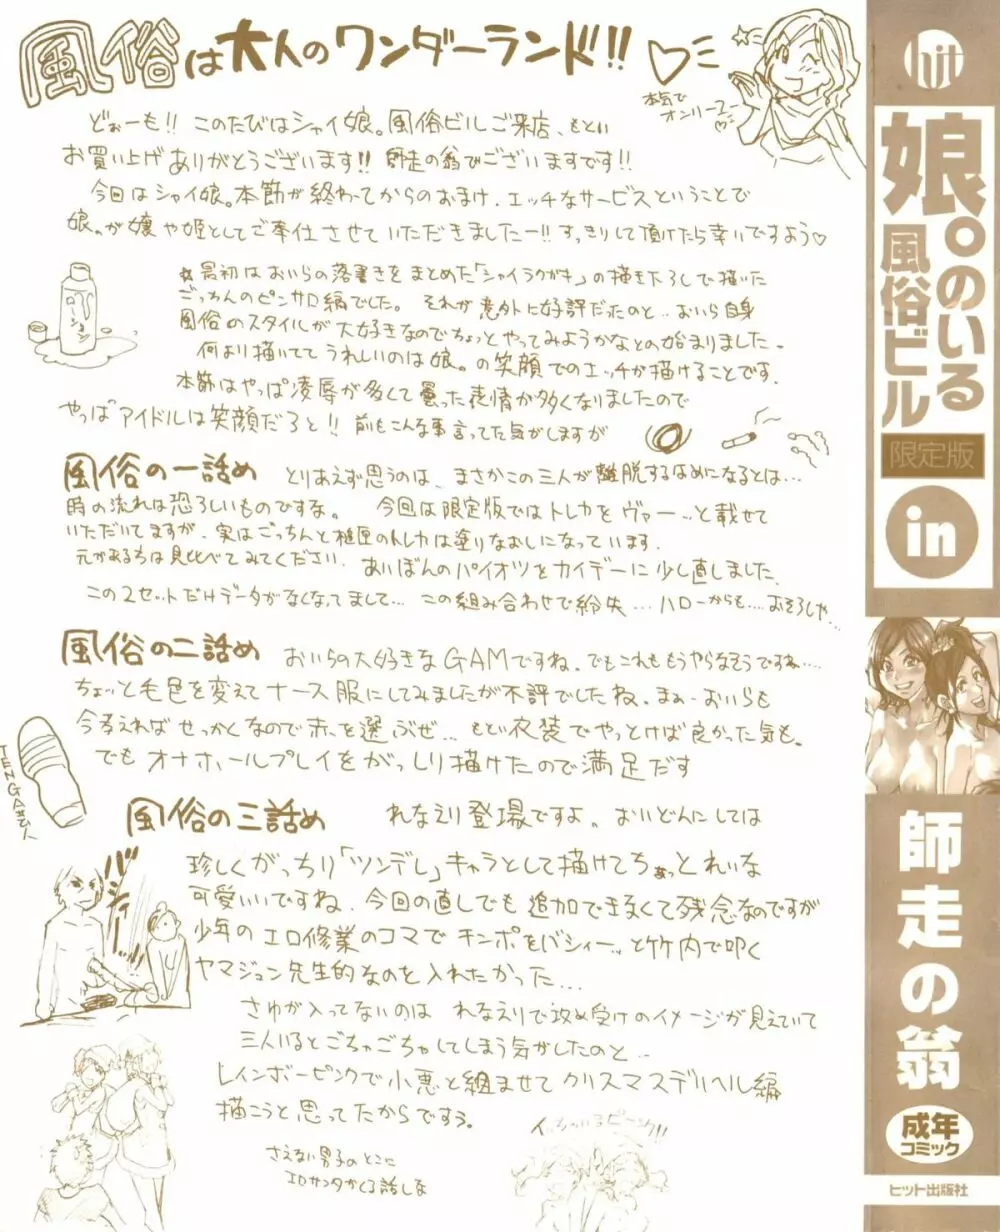 風俗は大人のワンダーランド!!
本気で
オンリーユー
どぉーも!! このたびはシャイ娘。風俗ビルご来店、もとい
お買い上げありがとうございます!! 師走の翁でございますです!!
今回はシャイ娘。本節が終わってからのおまけ、エッチなサービスということで
娘。が嬢や姫としてご奉仕させていただきましたー!! すっきりして頂けたら幸いですよう♡
ローション
最初はおいらの落書きをまとめた「シャイラクガキ」の描き下ろしで描いた
ごっちんのピンサロ編でした。それが意外に好評だったのと…おいら自身
風俗のスタイルが大好きなのでちょっとやってみようかなとの始まりました。
何より描いててうれしいのは娘。の笑顔でのエッチが描けることです。
本節はやっぱ凌辱が多くて曇った表情が多くなりましたので
やっぱアイドルは笑顔だろと!! 前もこんな事言ってた気がしますが
風俗の一話め とりあえず思うのは、まさかこの三人が離脱するはめになるとは…
時の流れは恐ろしいものですな。 今回は限定版ではトレカをヴァーーッと載せて
いただいてますが、実はごっちんと のトレカは塗りなおしになっています。
元がある方は見比べてみてください。あいぼんのパイオツをカイデーに少し直しました。
この2セットだけデータがなくなってまして… この組み合わせで紛失… ハローからも…、おそろしや…
風俗の二話め おいらの大好きなGAMですね。でもこれももうやらなそうですね…..
ちょっと毛色を変えてナース服にしてみましたが不評でしたね。まぁ、おいらも
今考えればせっかくなので赤を選ぶぜ… もとい衣装でやっとけば良かった気も。
でもオナホールプレイをがっしり描けたので満足だす
TENGA芸人
風俗の三話め れなえり登場ですよ。おいどんにしては
珍しくがっちり「ツンデレ」キャラとして描けてちょっとれいな
可愛いいですね。今回の直しでも追加できなくて残念なのですが
少年のエロ修業のコマでチンポをバシィーッと竹内で叩く
ヤマジュン先生的なのを入れたかった…
さゆが入ってないのは れなえりで攻め受けのイメージが見えていて
三人いるとごちゃごちゃしてしまう気がしたのと…
レインボーピンクで小悪と組ませてクリスマスデリヘル編
描こうと思ってたからですぅ。
さえない男子のとこに
エロサンタがくる話しな
hit
娘。のいる風俗ビル
限定版
in
師走の翁
成年
コミック
ヒット出版社